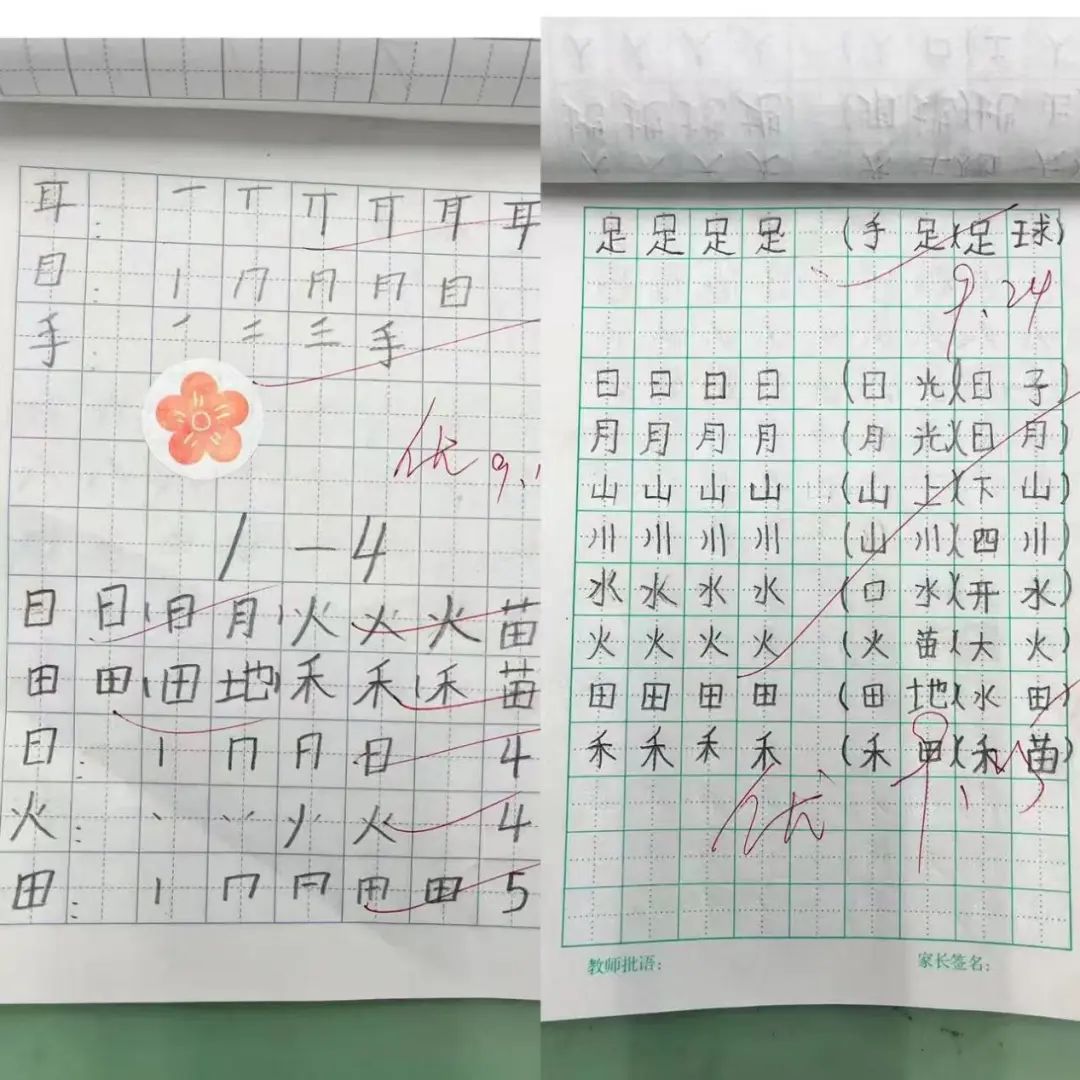 耳： 一 丅 丌 耳
目： 丨 冂 目
手： 三 手
优 9.
1－4
日 日（目 月）火 火 火 苗
田 田（田 地）禾 禾（禾 苗
日： 丨 冂 日 4
火： 丶 丷 火 4
田： 丨 冂 田 田 5
足 足 足 足 （手 足）（足 球）
9.24
日 日 日 日 （日 光）（日 子
月 月 月 月 （月 光）（日 月）
山 山 山 山 （山 上）（下 山）
川 川 川 川 （山 川）（四 川）
水 水 水 水 （口 水）（开 水）
火 火 火 火 （火 苗）（大 火）
田 田 田 田 （田 地）（水 田）
禾 禾 禾 禾 （禾 田）（禾 苗）
优
教师批语：
家长签名：